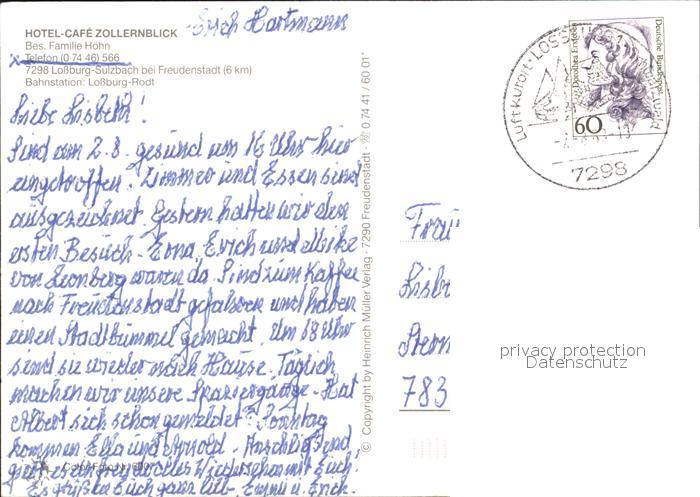 Erich Hartmann
HOTEL-CAFÉ ZOLLERNBLICK
Bes. Familie Höhn
x Telefon (0 74 46) 566
7298 Loßburg-Sulzbach bei Freudenstadt (6 km)
Bahnstation: Loßburg-Rodt
Liebe Lisbeth!
Sind am 2.8. gesund um 16 Uhr hier
eingetroffen. Zimmer und Essen sind
ausgezeichnet. Gestern hatten wir den
ersten Besuch. Erna, Erich und
von Leonberg waren da. Sind zum Kaffee
nach Freudenstadt gefahren und haben
einen Stadtbummel gemacht. Um 18 Uhr
sind sie wieder nach Hause. Täglich
machen wir unsere Spaziergänge. Hat
Albert sich schon gemeldet? Sonntag
kommen Ella und Arnold.
Wiedersehen mit Euch.
Es grüßen Euch ganz lieb Emmi u. Erich.
© Copyright by Heinrich Müller Verlag · 7290 Freudenstadt · ☏ 0 74 41 / 60 01*
Luftkurort · LOSSBURG
7298
Deutsche Bundespost
Dorothea Erxleben
60
Frau
Lisbe
Stern
783
privacy protection
Datenschutz